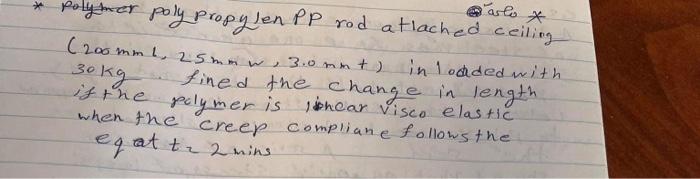 * polymer polypropylen PP rod atlached ceiling
(200 mm l, 25mm w, 3.0 mm t) in loaded with
30kg. fined the change in length
if the polymer is linear visco elastic
when the creep compliane follows the
eq at t= 2 mins